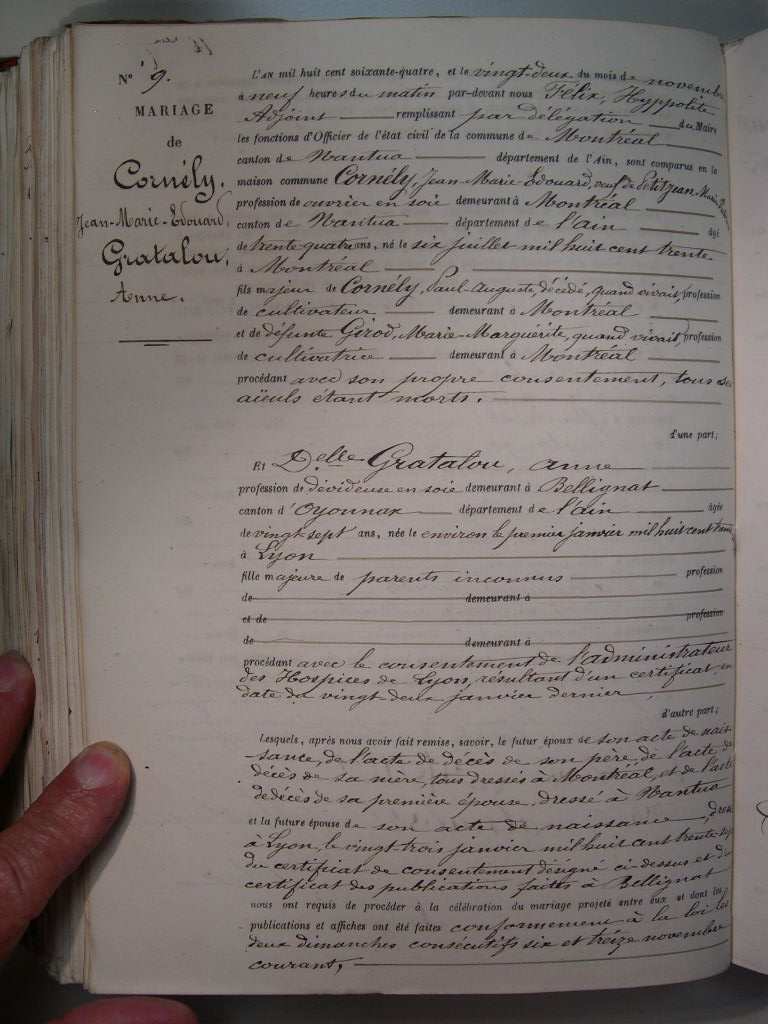 N° 9.
MARIAGE
de
Cornély,
Jean-Marie-Edouard,
Gratalou,
Anne.
L'AN mil huit cent soixante-quatre, et le vingt-deux du mois de novembre
à neuf heures du matin par-devant nous Félix, Hyppolite
Adjoint remplissant par délégation du Maire
les fonctions d'Officier de l'état civil de la commune de Montréal
canton de Nantua département de l'Ain, sont comparus en la
maison commune Cornély, Jean-Marie-Edouard, veuf de Petitjean Marie
profession de ouvrier en soie demeurant à Montréal
canton de Nantua département de l'ain âgé
de trente quatre ans, né le six juillet mil huit cent trente
à Montréal
fils majeur de Cornély, Paul-Auguste, décédé, quand vivait, profession
de cultivateur demeurant à Montréal
et de défunte Girod, Marie-Marguérite, quand vivait, profession
de cultivatrice demeurant à Montréal
procédant avec son propre consentement, tous ses
aïeuls étant morts.
d'une part;
Et Delle Gratalou, anne
profession de dévideuse en soie demeurant à Bellignat
canton d'Oyonnax département de l'ain âgée
de vingt-sept ans, née le environ le premier janvier mil huit cent
à Lyon
fille majeure de parents inconnus profession
de demeurant à
et de profession
de demeurant à
procédant avec le consentement de l'administrateur
des Hospices de Lyon, résultant d'un certificat, en
date du vingt deux janvier dernier,
d'autre part;
Lesquels, après nous avoir fait remise, savoir, le futur époux de son acte de nais
sance, de l'acte de décès de son père, de l'acte de
décès de sa mère, tous dressés à Montréal, et de l'acte
de décès de sa première épouse, dressé à Nantua
et la future épouse de son acte de naissance, dressé
à Lyon, le vingt-trois janvier mil huit cent trente-sept
du certificat de consentement désigné ci-dessus et du
certificat des publications faites à Bellignat
nous ont requis de procéder à la célébration du mariage projeté entre eux et dont les
publications et affiches ont été faites conformément à la loi les
deux dimanches consécutifs six et treize novembre
courant,